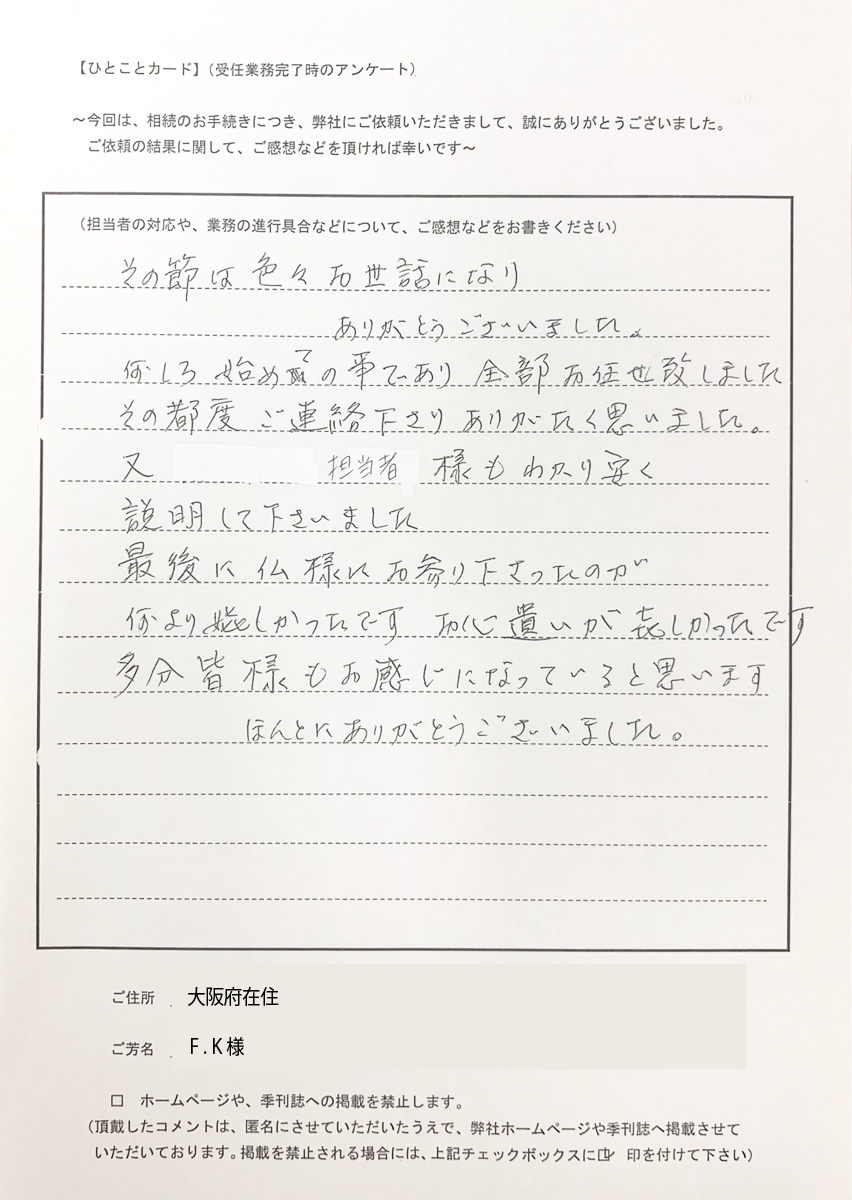 【ひとことカード】(受任業務完了時のアンケート)
～今回は、相続のお手続きにつき、弊社にご依頼いただきまして、誠にありがとうございました。
ご依頼の結果に関して、ご感想などを頂ければ幸いです～
(担当者の対応や、業務の進行具合などについて、ご感想などをお書きください)
その節は色々お世話になり
ありがとうございました。
何しろ始めての事であり全部お任せ致しました
その都度ご連絡下さりありがたく思いました。
又 担当者 様もわかり安く
説明して下さいました
最後に仏様にお参り下さったのが
何より嬉しかったです お心遣いが嬉しかったです
多分皆様もお感じになっていると思います
ほんとにありがとうございました。
ご住所 大阪府在住
ご芳名 F.K様
□ ホームページや、季刊誌への掲載を禁止します。
(頂戴したコメントは、匿名にさせていただいたうえで、弊社ホームページや季刊誌へ掲載させて
いただいております。掲載を禁止される場合には、上記チェックボックスに☑ 印を付けて下さい)